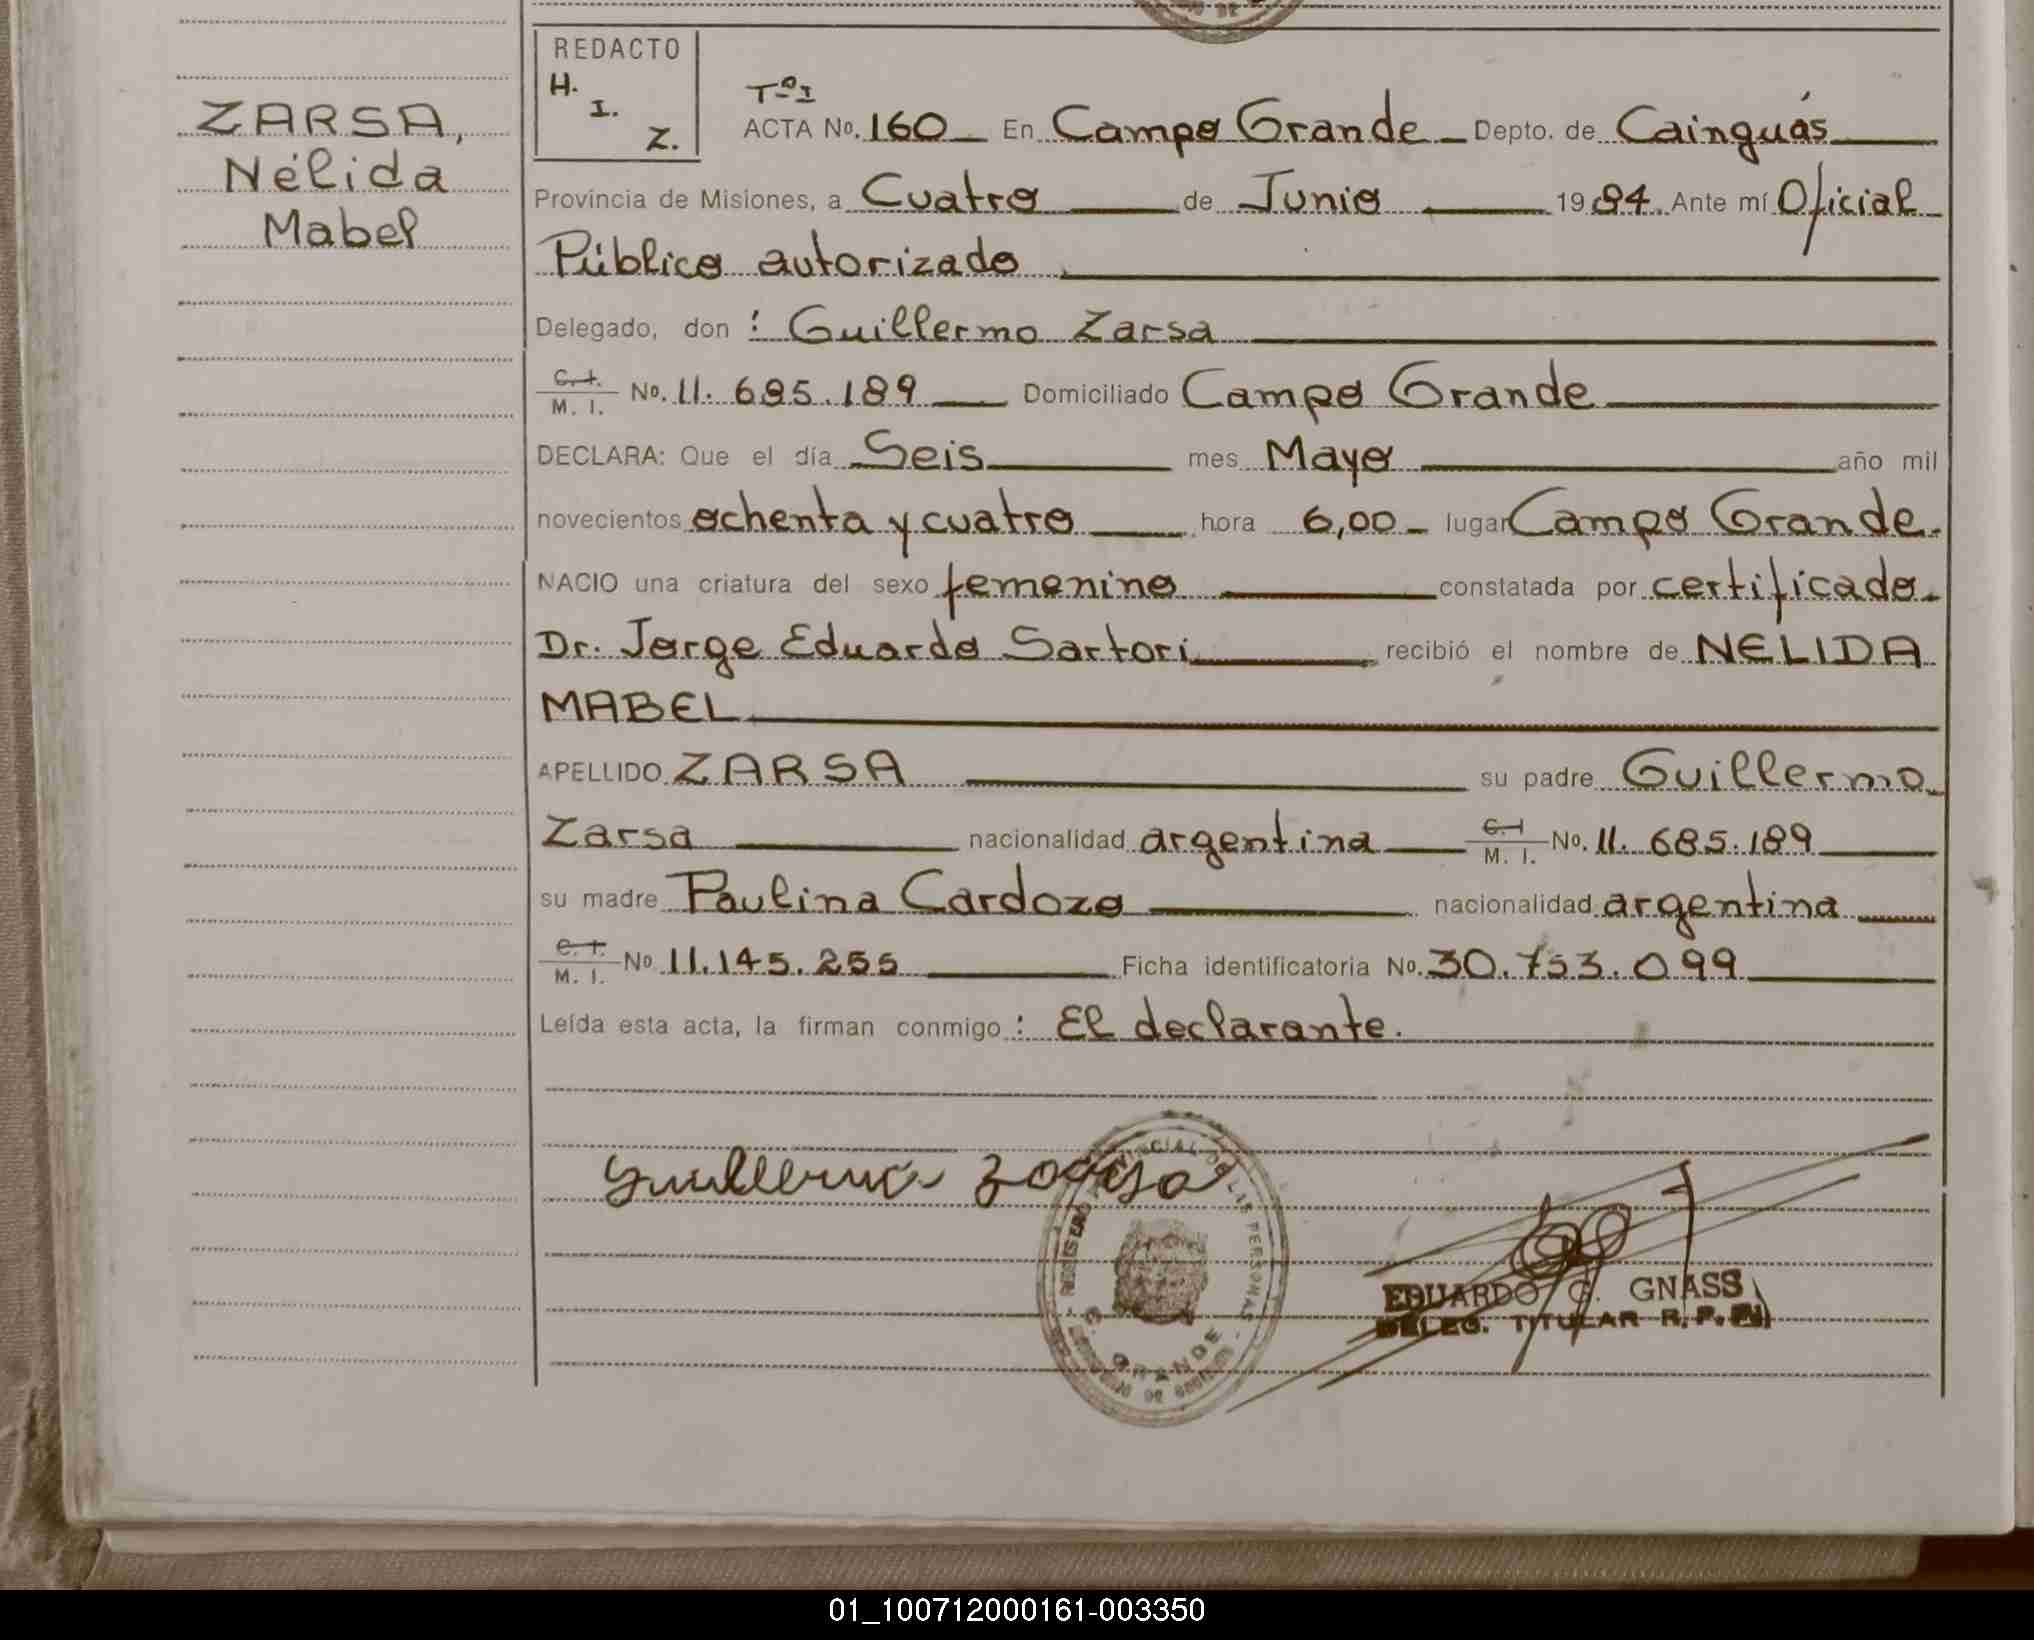 ZARSA,
Nélida
Mabel
REDACTO
H.
I.
Z.
Tº I
ACTA No. 160 En Campo Grande Depto. de Cainguás
Provincia de Misiones, a Cuatro de Junio 1984. Ante mí Oficial
Público autorizado
Delegado, don : Guillermo Zarsa
C. I. M. I. No. 11.685.189 Domiciliado Campo Grande
DECLARA: Que el día Seis mes Mayo año mil
novecientos ochenta y cuatro hora 6,00 lugar Campo Grande.
NACIO una criatura del sexo femenino constatada por certificado
Dr. Jorge Eduardo Sartori recibió el nombre de NELIDA
MABEL
APELLIDO ZARSA su padre Guillermo
Zarsa nacionalidad argentina C. I M. I. No. 11.685.189
su madre Paulina Cardozo nacionalidad argentina
C. I. M. I. No 11.145.255 Ficha identificatoria No. 30.753.099
Leída esta acta, la firman conmigo : El declarante.
Guillermo Zarsa
GRANDE
EDUARDO G. GNASS
DELEG. TITULAR R. P.
01_100712000161-003350